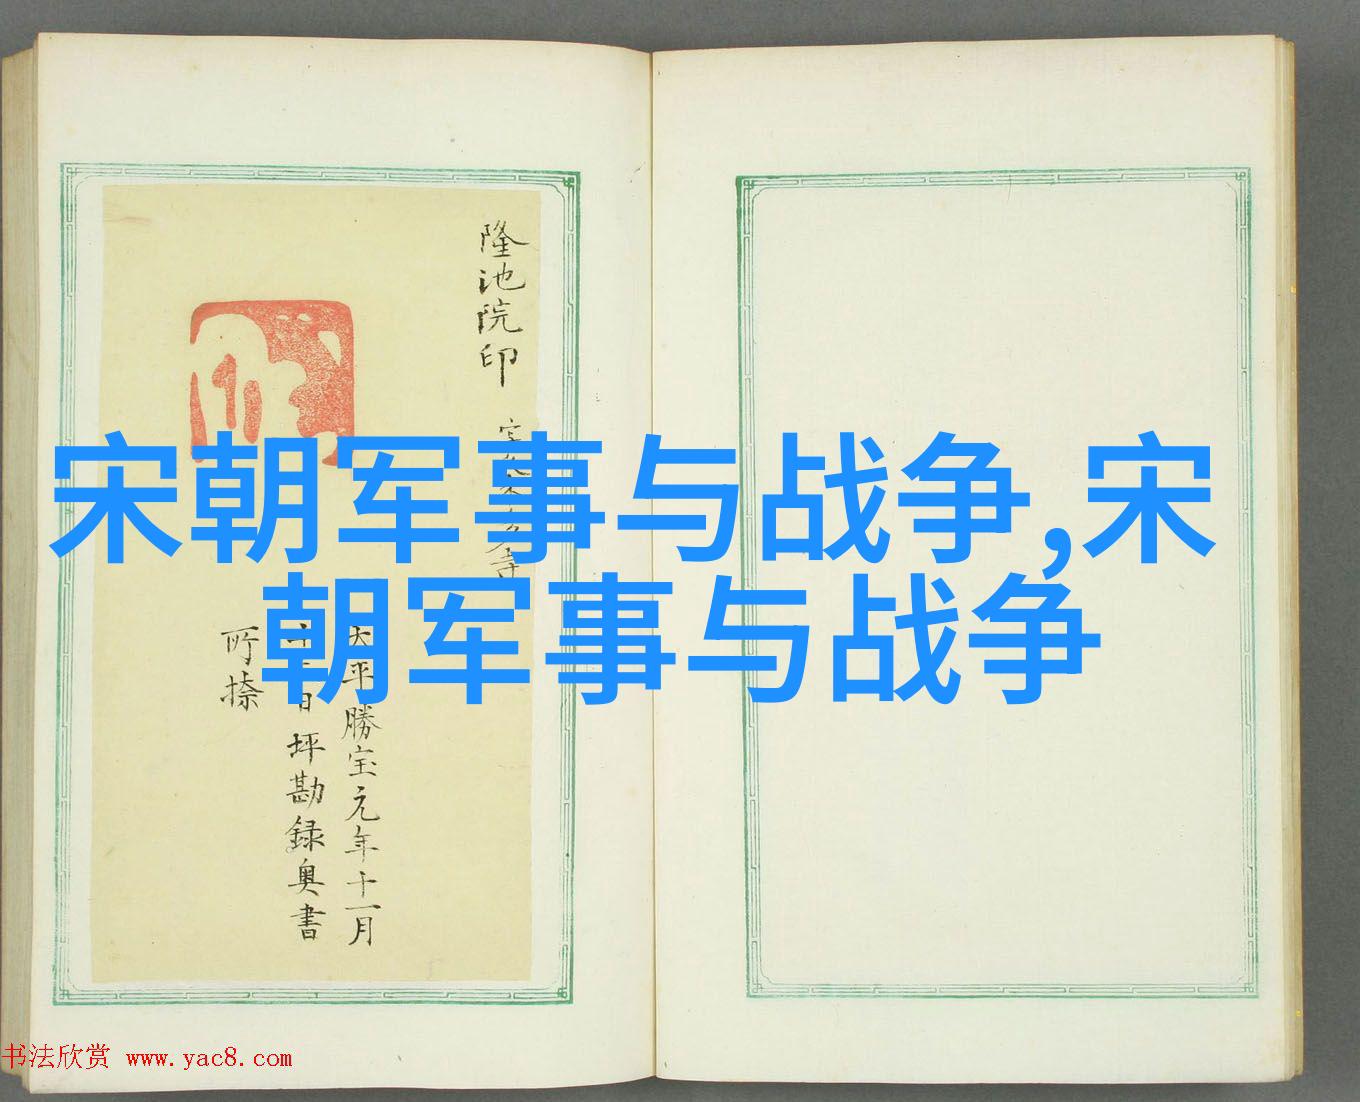 隆池院印
太平勝宝元年十一月
十二日坪勘録奥書
所捺
宋朝军事与战争,宋
朝军事与战争
书法欣赏 www.yac8.com